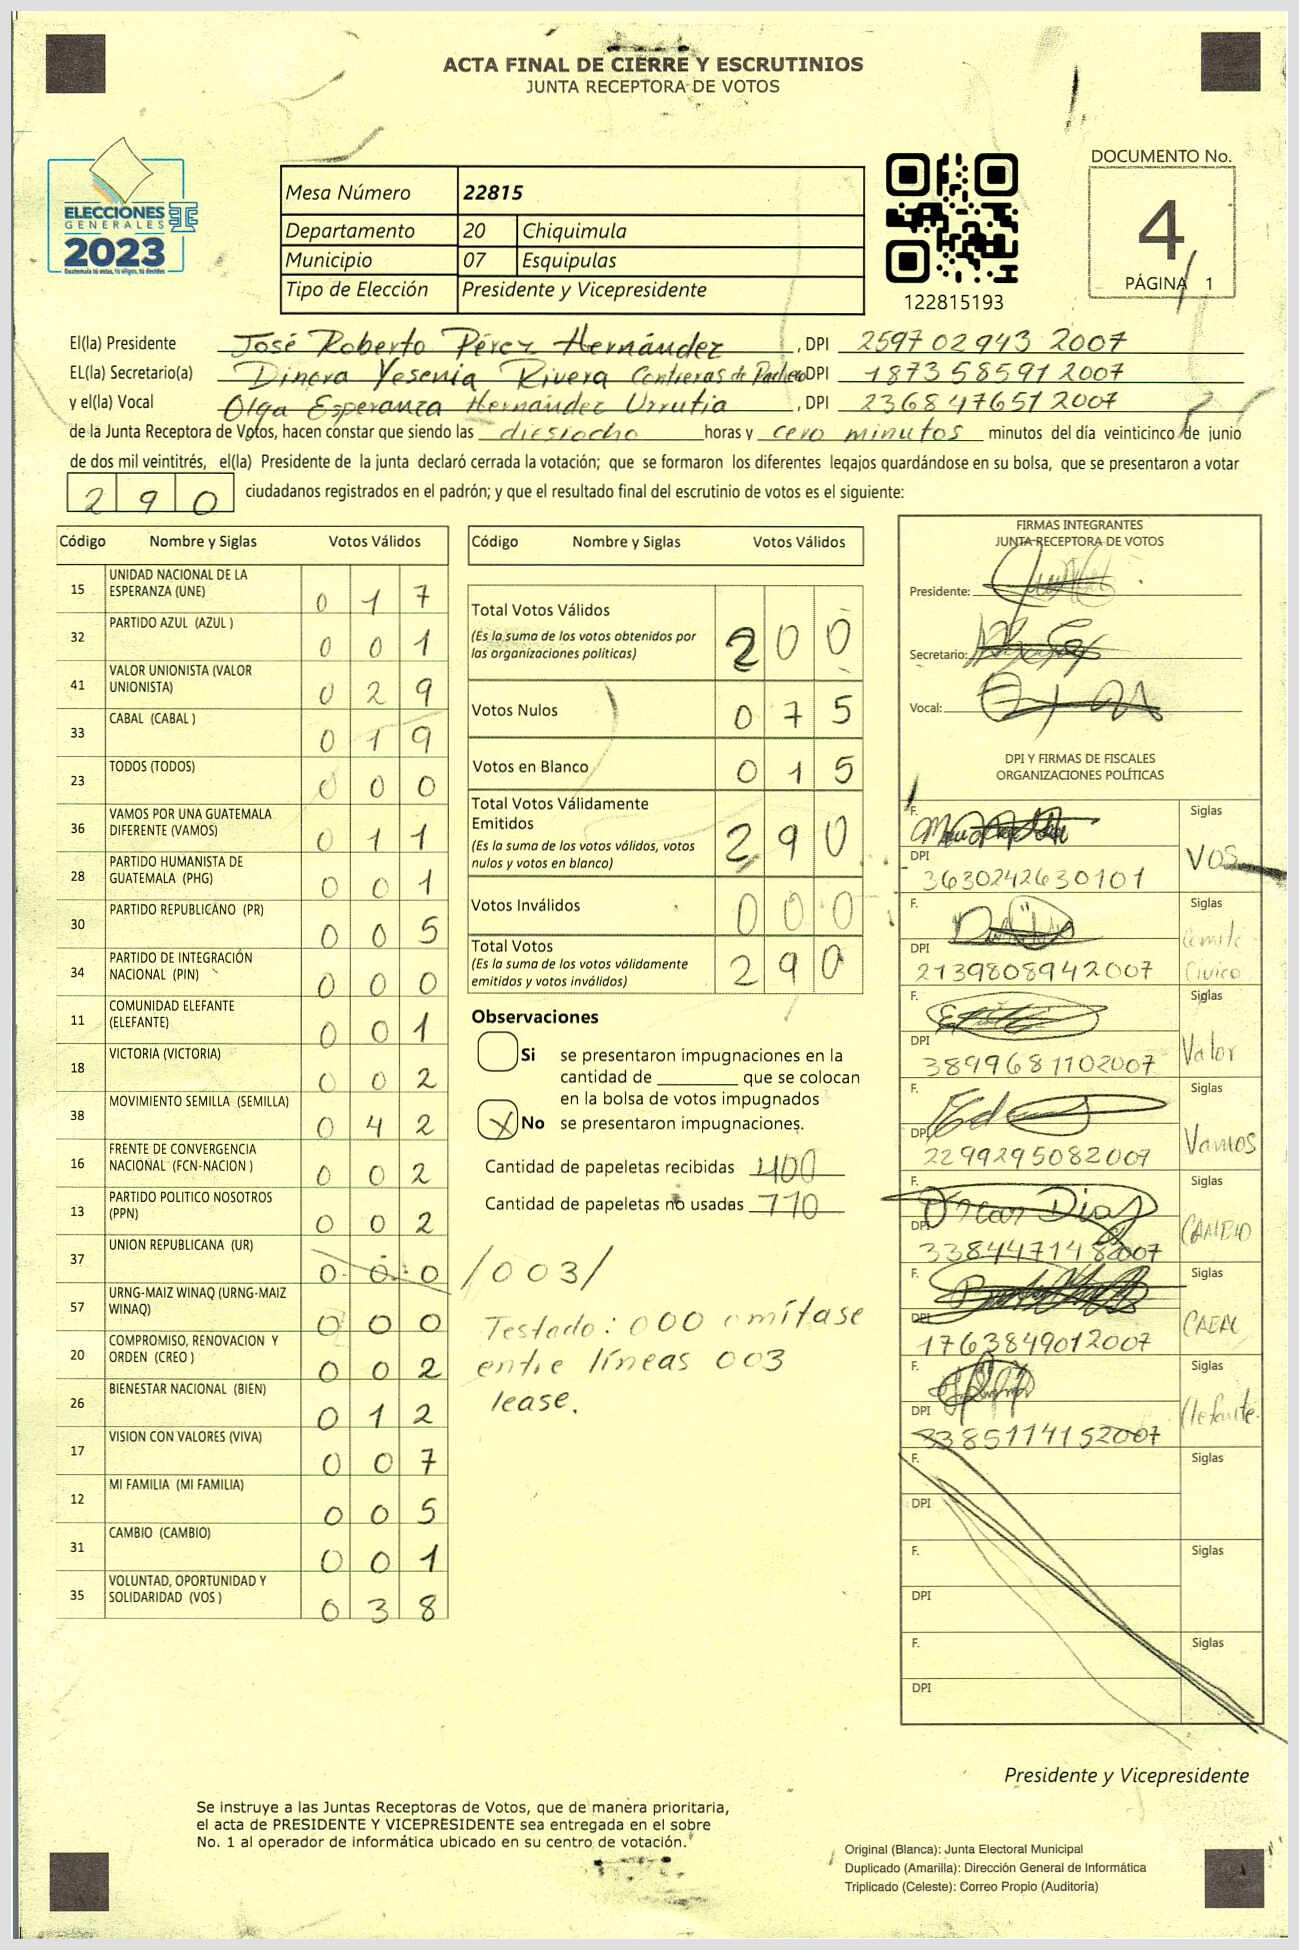 ACTA FINAL DE CIERRE Y ESCRUTINIOS
JUNTA RECEPTORA DE VOTOS
ELECCIONES
GENERALES
2023
Guatemala tú votas, tú eliges, tú decides
Mesa Número 22815
Departamento 20 Chiquimula
Municipio 07 Esquipulas
Tipo de Elección Presidente y Vicepresidente
122815193
DOCUMENTO No.
4
PÁGINA 1
El(la) Presidente José Roberto Pérez Hernández, DPI 2597 02943 2007
EL(la) Secretario(a) Dinora Yesenia Rivera Contreras de Pacheco DPI 1873 58591 2007
y el(la) Vocal Olga Esperanza Hernández Urrutia, DPI 2368 47651 2007
de la Junta Receptora de Votos, hacen constar que siendo las dieciocho horas y cero minutos minutos del día veinticinco de junio
de dos mil veintitrés, el(la) Presidente de la junta declaró cerrada la votación; que se formaron los diferentes legajos quardándose en su bolsa, que se presentaron a votar
290 ciudadanos registrados en el padrón; y que el resultado final del escrutinio de votos es el siguiente:
Código Nombre y Siglas Votos Válidos
15 UNIDAD NACIONAL DE LA ESPERANZA (UNE) 0 1 7
32 PARTIDO AZUL (AZUL ) 0 0 1
41 VALOR UNIONISTA (VALOR UNIONISTA) 0 2 9
33 CABAL (CABAL ) 0 1 9
23 TODOS (TODOS) 0 0 0
36 VAMOS POR UNA GUATEMALA DIFERENTE (VAMOS) 0 1 1
28 PARTIDO HUMANISTA DE GUATEMALA (PHG) 0 0 1
30 PARTIDO REPUBLICANO (PR) 0 0 5
34 PARTIDO DE INTEGRACIÓN NACIONAL (PIN) 0 0 0
11 COMUNIDAD ELEFANTE (ELEFANTE) 0 0 1
18 VICTORIA (VICTORIA) 0 0 2
38 MOVIMIENTO SEMILLA (SEMILLA) 0 4 2
16 FRENTE DE CONVERGENCIA NACIONAL (FCN-NACION ) 0 0 2
13 PARTIDO POLITICO NOSOTROS (PPN) 0 0 2
37 UNION REPUBLICANA (UR) 0 0 0 /003/
57 URNG-MAIZ WINAQ (URNG-MAIZ WINAQ) 0 0 0
20 COMPROMISO, RENOVACION Y ORDEN (CREO ) 0 0 2
26 BIENESTAR NACIONAL (BIEN) 0 1 2
17 VISION CON VALORES (VIVA) 0 0 7
12 MI FAMILIA (MI FAMILIA) 0 0 5
31 CAMBIO (CAMBIO) 0 0 1
35 VOLUNTAD, OPORTUNIDAD Y SOLIDARIDAD (VOS ) 0 3 8
Código Nombre y Siglas Votos Válidos
Total Votos Válidos 2 0 0
(Es la suma de los votos obtenidos por
las organizaciones políticas)
Votos Nulos 0 7 5
Votos en Blanco 0 1 5
Total Votos Válidamente
Emitidos 2 9 0
(Es la suma de los votos válidos, votos
nulos y votos en blanco)
Votos Inválidos 0 0 0
Total Votos 2 9 0
(Es la suma de los votos válidamente
emitidos y votos inválidos)
Observaciones
Si se presentaron impugnaciones en la
cantidad de ________ que se colocan
en la bolsa de votos impugnados
X No se presentaron impugnaciones.
Cantidad de papeletas recibidas 400
Cantidad de papeletas no usadas 110
Testado: 000 omítase
entre líneas 003
lease.
FIRMAS INTEGRANTES
JUNTA RECEPTORA DE VOTOS
Presidente:
Secretario:
Vocal:
DPI Y FIRMAS DE FISCALES
ORGANIZACIONES POLÍTICAS
F. Siglas
DPI VOS
3630242630101
F. Siglas
DPI Comité
2139808942007 Cívico
F. Siglas
DPI Valor
3899681102007
F. Siglas
DPI Vamos
2299295082007
F. Oscar Diaz Siglas
DPI CAMBIO
3384471482007
F. Siglas
DPI CABAL
1763849012007
F. Siglas
DPI Elefante
3385114152007
F. Siglas
DPI
F. Siglas
DPI
F. Siglas
DPI
Presidente y Vicepresidente
Se instruye a las Juntas Receptoras de Votos, que de manera prioritaria,
el acta de PRESIDENTE Y VICEPRESIDENTE sea entregada en el sobre
No. 1 al operador de informática ubicado en su centro de votación.
Original (Blanca): Junta Electoral Municipal
Duplicado (Amarilla): Dirección General de Informática
Triplicado (Celeste): Correo Propio (Auditoría)